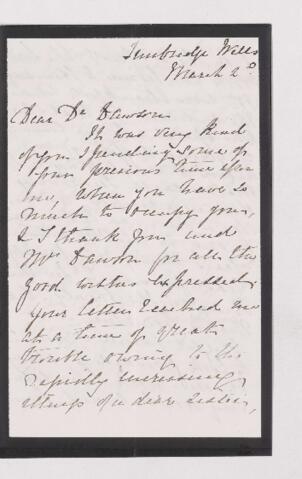 Tunbridge Wells
March 2d
Dear Dr Dawson
It was very kind
of you spending some of
your precious time upon
me, when you have so
much to occupy you,
& I thank you and
Mrs Dawson for all the
good wishes expressed.
Your letter reached me
at a time of great
trouble owing to the
rapidly increasing
illness of a dear sister,